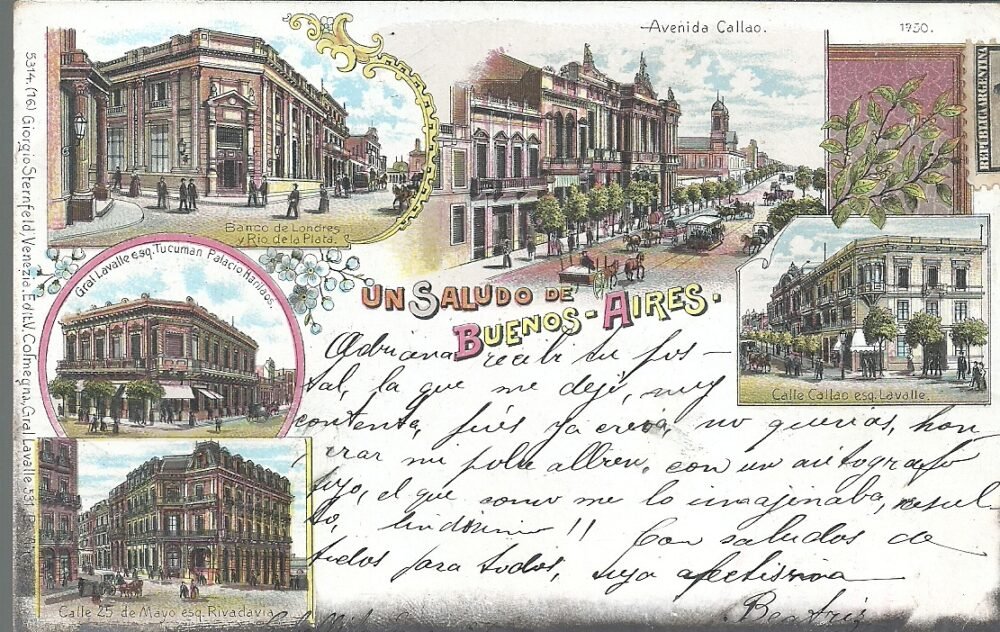 Avenida Callao.
1930.
REPUBLICA ARGENTINA
5314. (76) Giorgio Sternfeld, Venezia. Edit V. Colmegna, Gral Lavalle 531
Banco de Londres
y Rio de la Plata.
Gral Lavalle esq. Tucuman Palacio
UN SALUDO DE
BUENOS-AIRES.
Calle Callao esq. Lavalle.
Calle 25 de Mayo esq. Rivadavia
Adriana recibí tu pos-
tal, la que me dejó, muy
contenta, pués ya creía, no querias, hon
rar mi pobre album, con un autografo
tuyo, el que como me lo imajinaba, resul
to, lindisimo!! Con saludos de
todos para todos, tuya afectisima
Beatriz